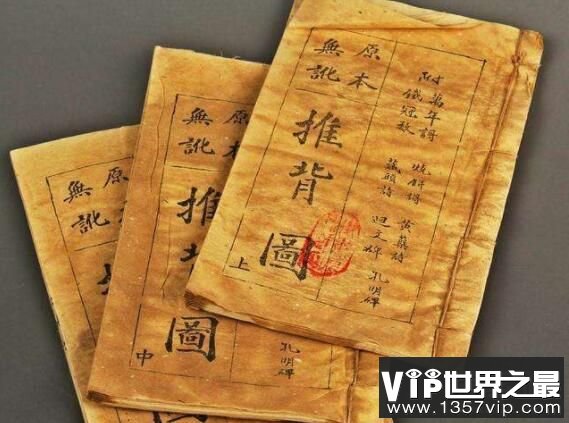 附
萬年
鐵冠數
燒餅
藏頭詩
黃蘗詩
迴文
孔明碑
原本
無訛
推背圖
上
孔明碑
原本
無訛
推背圖
中
原本
無訛
VIP世界之最
www.1357vip.com